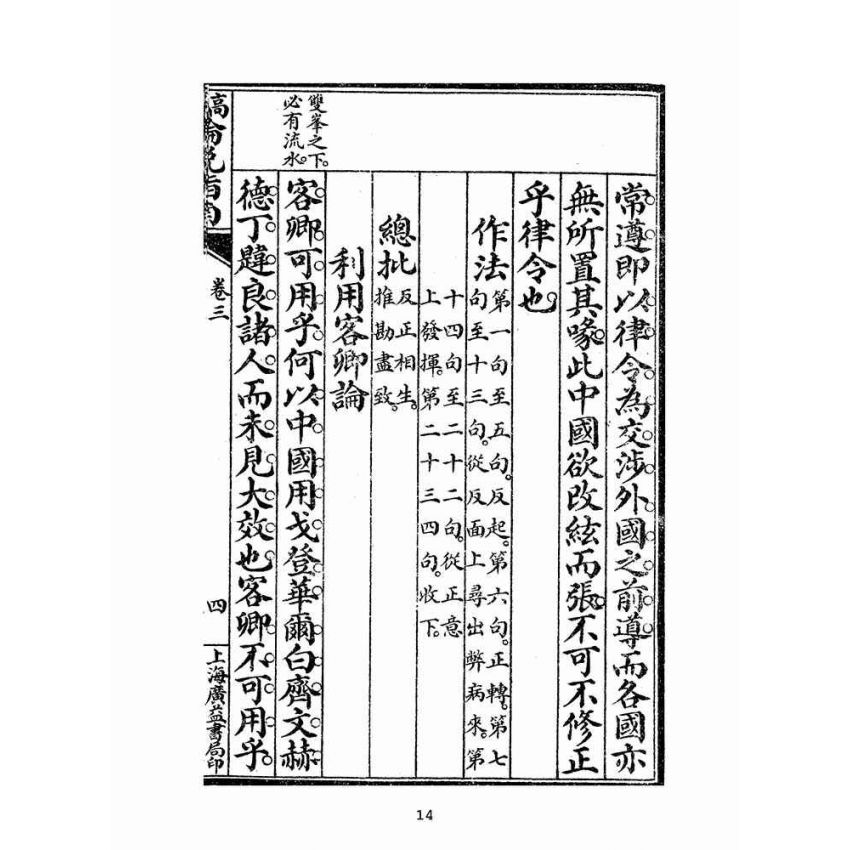 常遵即以律令為交涉外國之前導而各國亦
無所置其喙此中國欲改絃而張不可不修正
乎律令也
作法
第一句至五句。反起。第六句。正轉。第七
句至十三句。從反面上尋出弊病來。第
十四句至二十二句。從正意
上發揮。第二十三四句。收下。
總批
反正相生。
推勘盡致。
利用客卿論
雙峯之下。
必有流水。
客卿可用乎何以中國用戈登華爾白齊文赫
德丁韙良諸人而未見大效也客卿不可用乎
高論說指南
卷三
四
上海廣益書局印
14